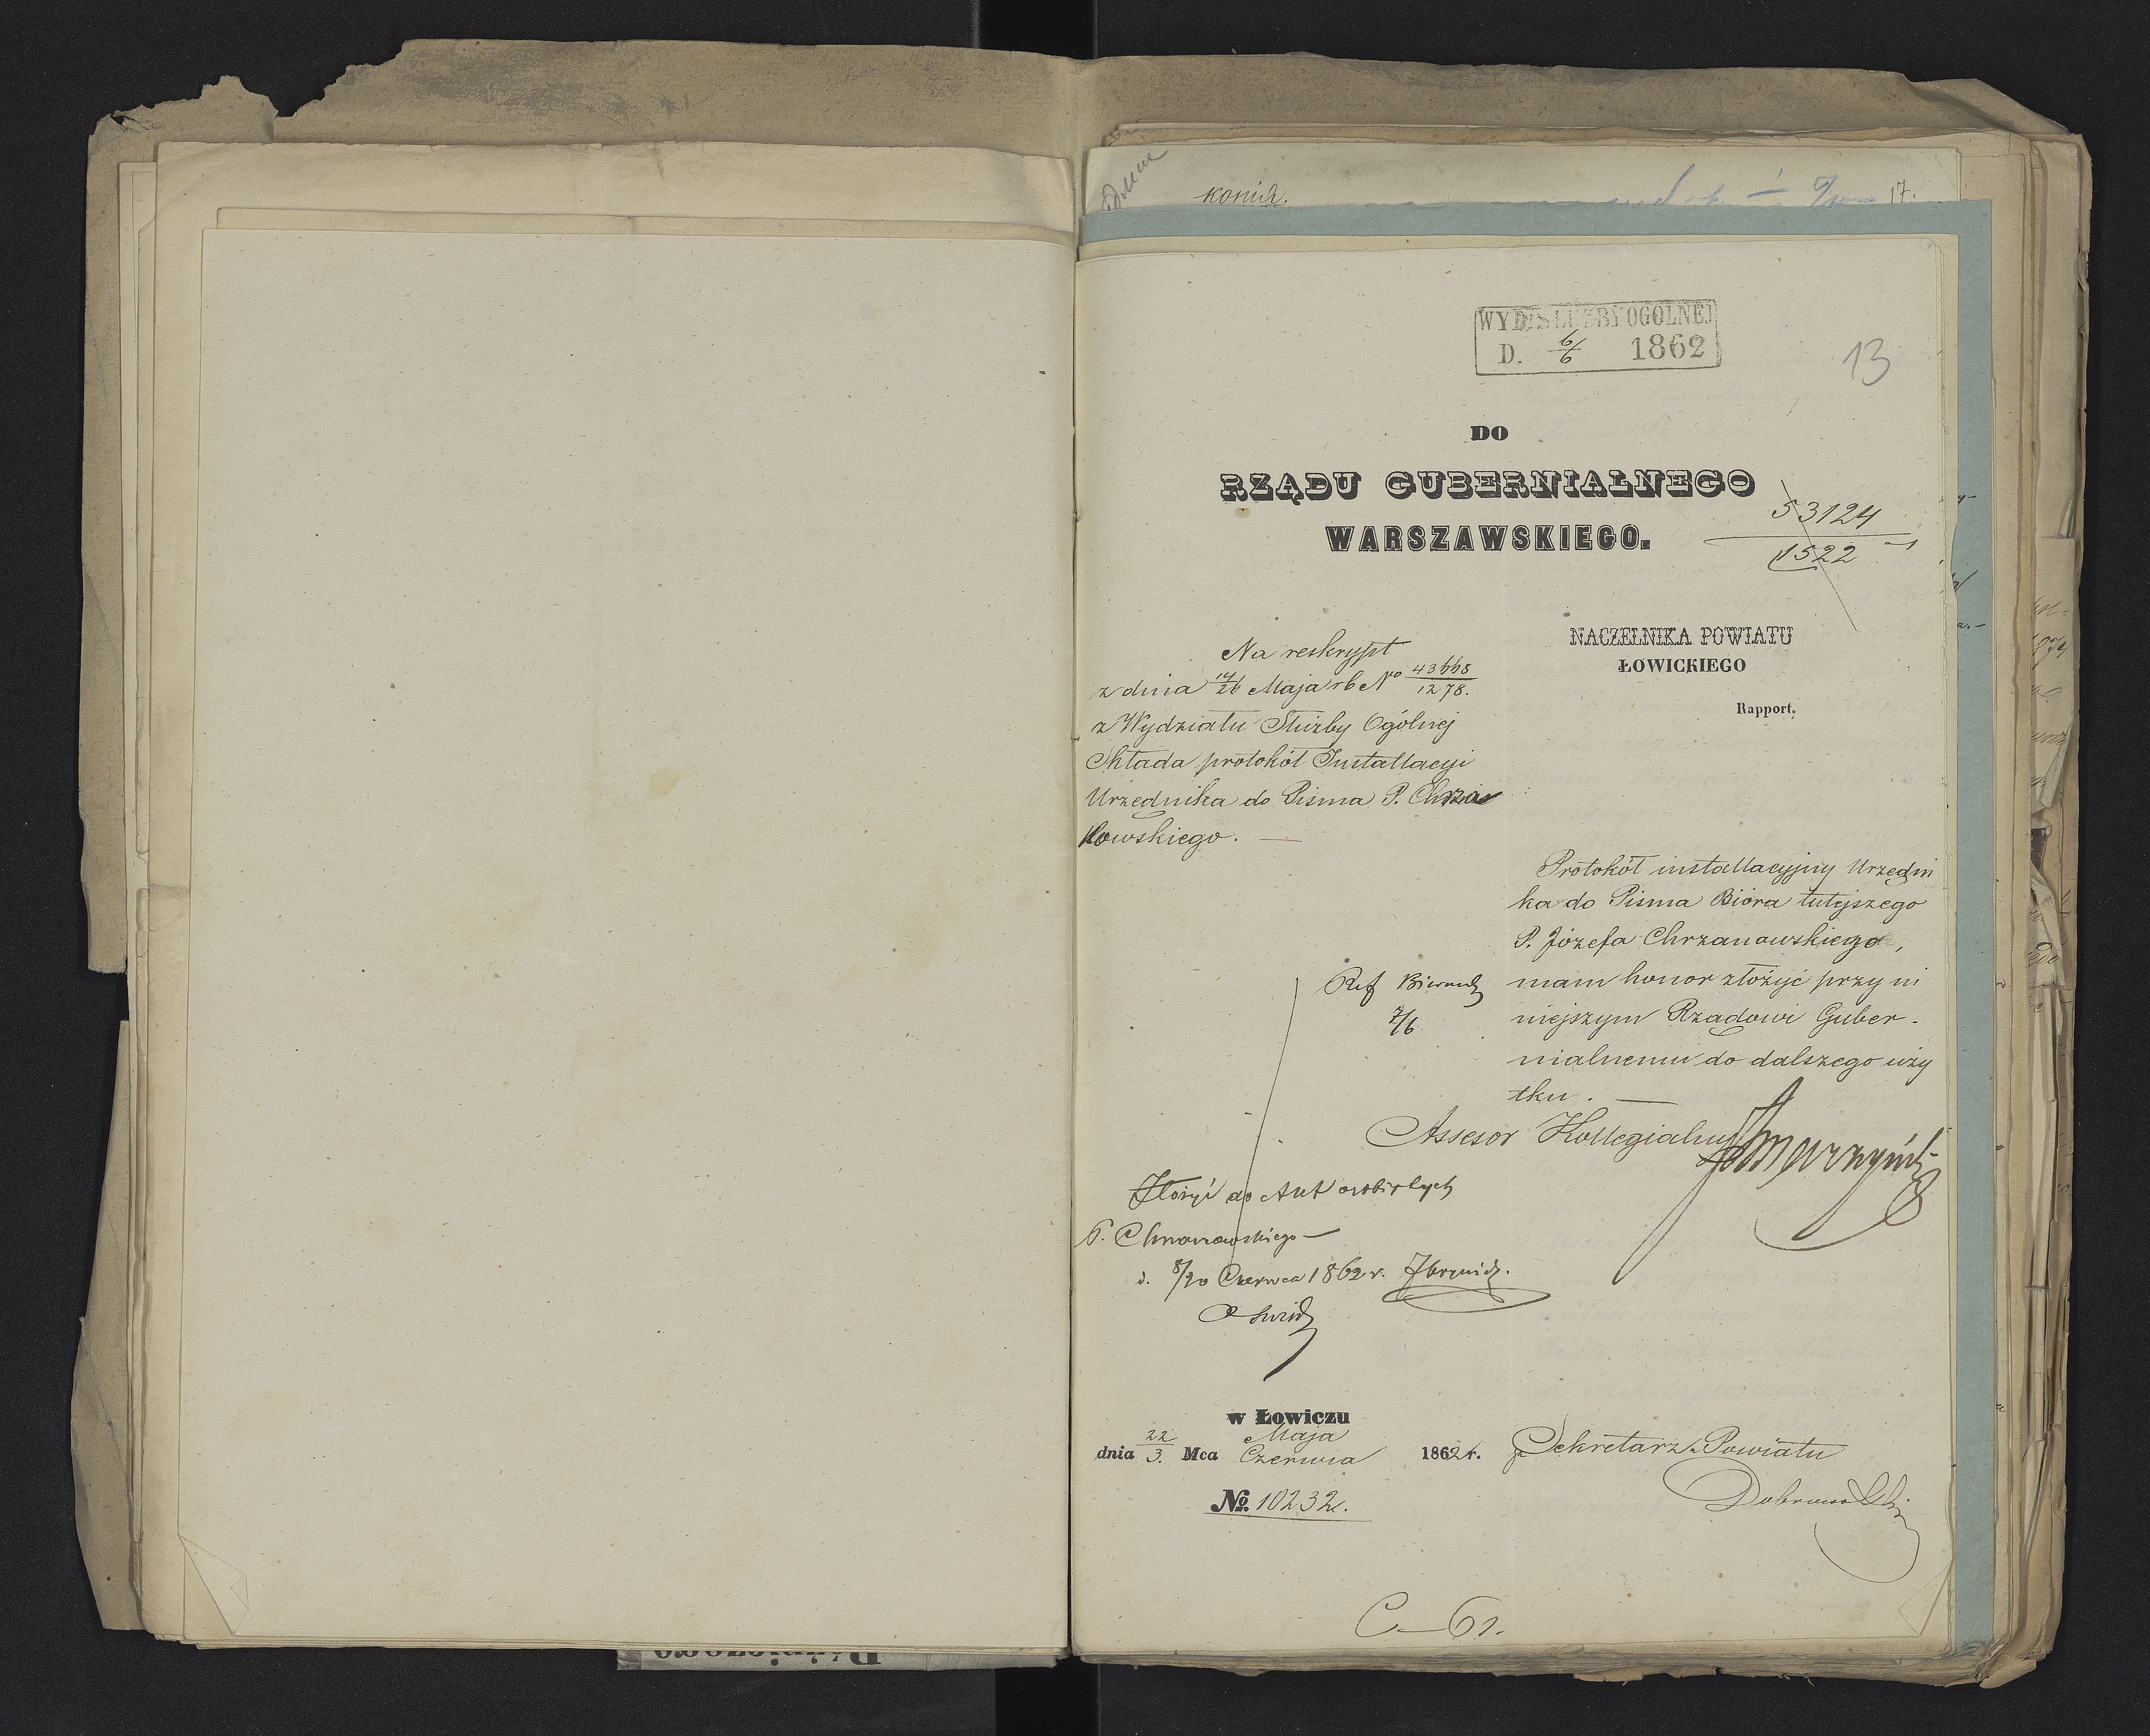 копія.
17.
WYDZ SŁUŻBY OGÓLNEJ
D. 6/6 1862
13
DO
RZĄDU GUBERNIALNEGO
WARSZAWSKIEGO.
53124
1522
NACZELNIKA POWIATU
ŁOWICKIEGO
Rapport.
Na reskrypt
z dnia 14/26 Maja rb No 43668/1278.
z Wydziału Służby Ogólnej
Składa protokół Installacyi
Urzędnika do Pisma P. Chrza
nowskiego. —
Protokół installacyjny Urzędni
ka do Pisma Bióra tutejszego
P. Józefa Chrzanowskiego,
mam honor złożyć przy ni
niejszym Rządowi Guber-
nialnemu do dalszego uży
tku. —
Ref
7/6
Assesor Kollegialny
Złożyć do Akt osobistych
P. Chrzanowskiego —
d. 8/20 Czerwca 1862 r.
w Łowiczu
dnia 22/3. Mca Maja/Czerwca 1862 r.
No. 10232.
Sekretarz Powiatu
Dobrowolski
C—61.